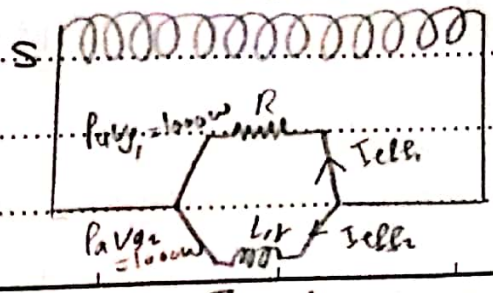 S
Pavg₁ = 1000w R
Ieff₁
Pavg₂ = 1000w L,r Ieff₂